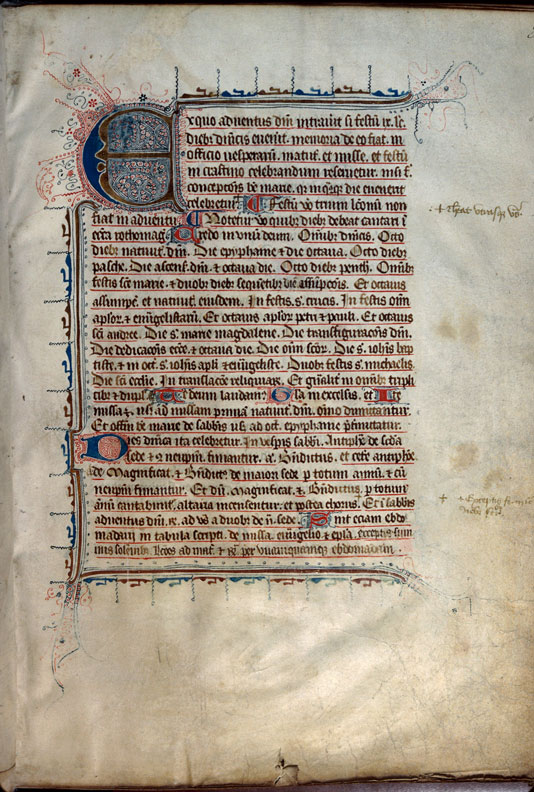 Ex quo adventus dñi intravit si festũ ix. lc.
dieb᷒ dñicis evenit. memoria de eo fiat. in
officio vesperarũ. matut̃. et misse. et festũ
in crastino celebrandum reservetur. nisi f.
concepcõis be marie. q̃ in q̃cũq̃ die evenerit
celebretur. Festũ v̊ trium lc̃onũ non
fiat in adventu. Notetur v̊ quib᷒ dieb᷒ debeat cantari ĩ
ecc̃a rothomag̃. Credo in unũ deum. Omib᷒ dñicis. Octo
dieb᷒ nativit̃. dñi. Die epyphanie & die octava. Octo dieb᷒
pasche. Die ascens̃. dñi. & octava die. Octo dieb᷒ penth̃. Omib᷒
festis sc̃e marie. & duob᷒ dieb᷒ sequẽtib᷒ die assũpcõis. Et octavis
assumpc̃. et nativit̃. eiusdem. In festis. s. crucis. In festis oĩm
ap̃lor̃. & euv̄gelistarũ. Et octavis ap̃lor petri & pauli. Et octavis
sc̃i andree. Die s. marie magdalene. Die transfiguracõis dñi.
Die dedicacõis ecc̃e. & octava die. Die oĩm sc̃or. Die s. ioh̃is bap
tiste. & in oct̃. s. ioh̃is apl̃i & euv̄geliste. Duob᷒ festis s. michaelis.
Die sc̃i In translacõe reliquiar̃. Et gñalit̃ in omib᷒ tripli
cib᷒ & dupl̃. Te deum laudam᷒. Gl̃a in excelsis. et Ite
missa ẽ. usq̃ ad missam primã nativit̃ dñi. oĩno dimittantur.
Et offiñ be marie de sabb̃is usq̃ ad oct̃. epyphanie p̃t̃mittatur.
Dies dñica ita celebretur. In vesp̃is sabb̃i. Antiph̃e de sc̃da
sede & neupm̃. finiantur. a. Bñdictus. et cet̃e antiph̃e
de Magnificat. & Bñdict᷒. de maiori sede p totum annũ. & cũ
neupm̃ finiantur. Et dũ Magnificat. & Bñdictus. p totum
annũ cantabunt̃. altaria incensentur. et postea chorus. Et ĩ sabb̃is
adventus dñi. ad a duob᷒ de sede. Sint eciam ebdo
madarii in tabula scripti. de missa. euv̄gelio & ep̃la. exceptis
solẽnib᷒. & per unamquamq̃ ebdomadam.